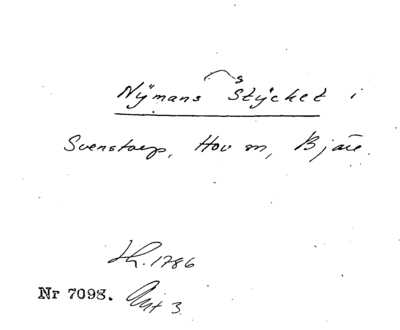 Nÿmans Stÿcket i
Svenstorp, Hov sn, Bjäre.
Lh. 1786
Nr 7098. Akt 3.